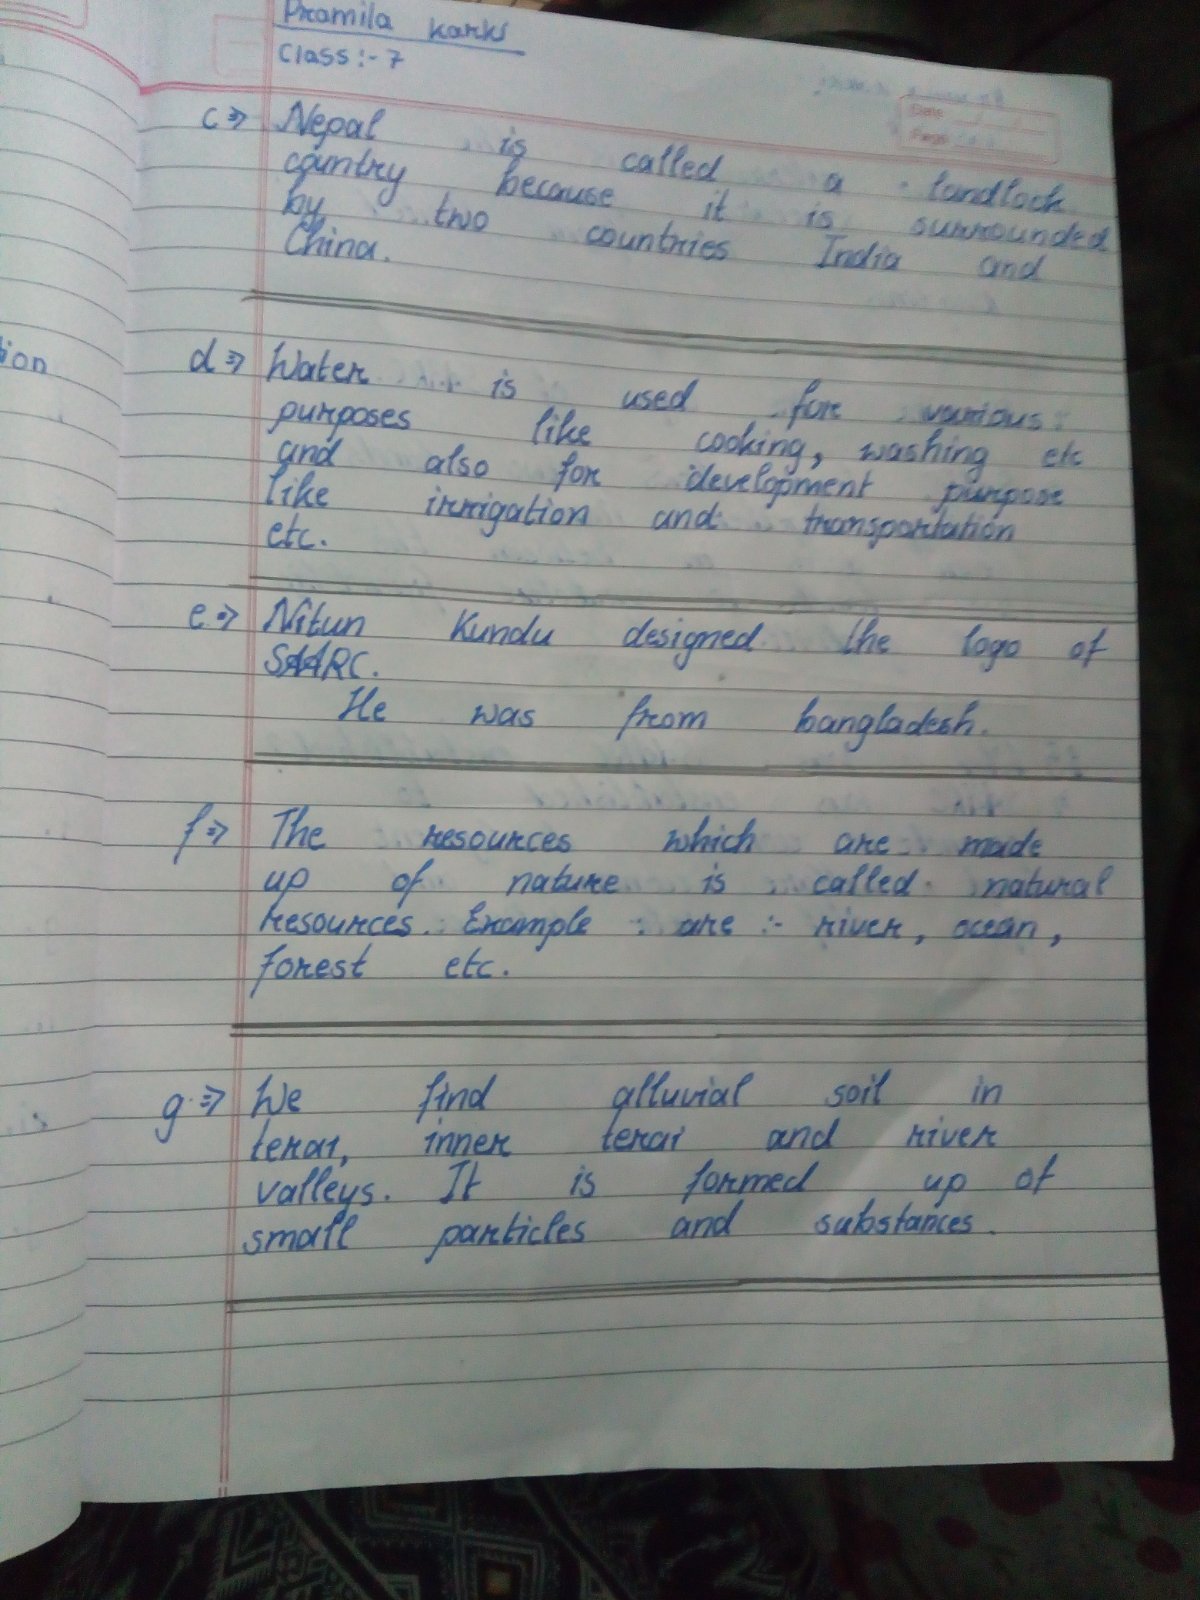 Pramila Karki
Class :- 7
Date
Page
c => Nepal is called a landlock
country because it is surrounded
by two countries India and
China.
tion
d => Water is used for various
purposes like cooking, washing etc
and also for development purpose
like irrigation and transportation
etc.
e => Nitun Kundu designed the logo of
SAARC.
He was from bangladesh.
f => The resources which are made
up of nature is called natural
resources. Example are :- river, ocean,
forest etc.
g => We find alluvial soil in
terai, inner terai and river
valleys. It is formed up of
small particles and substances.